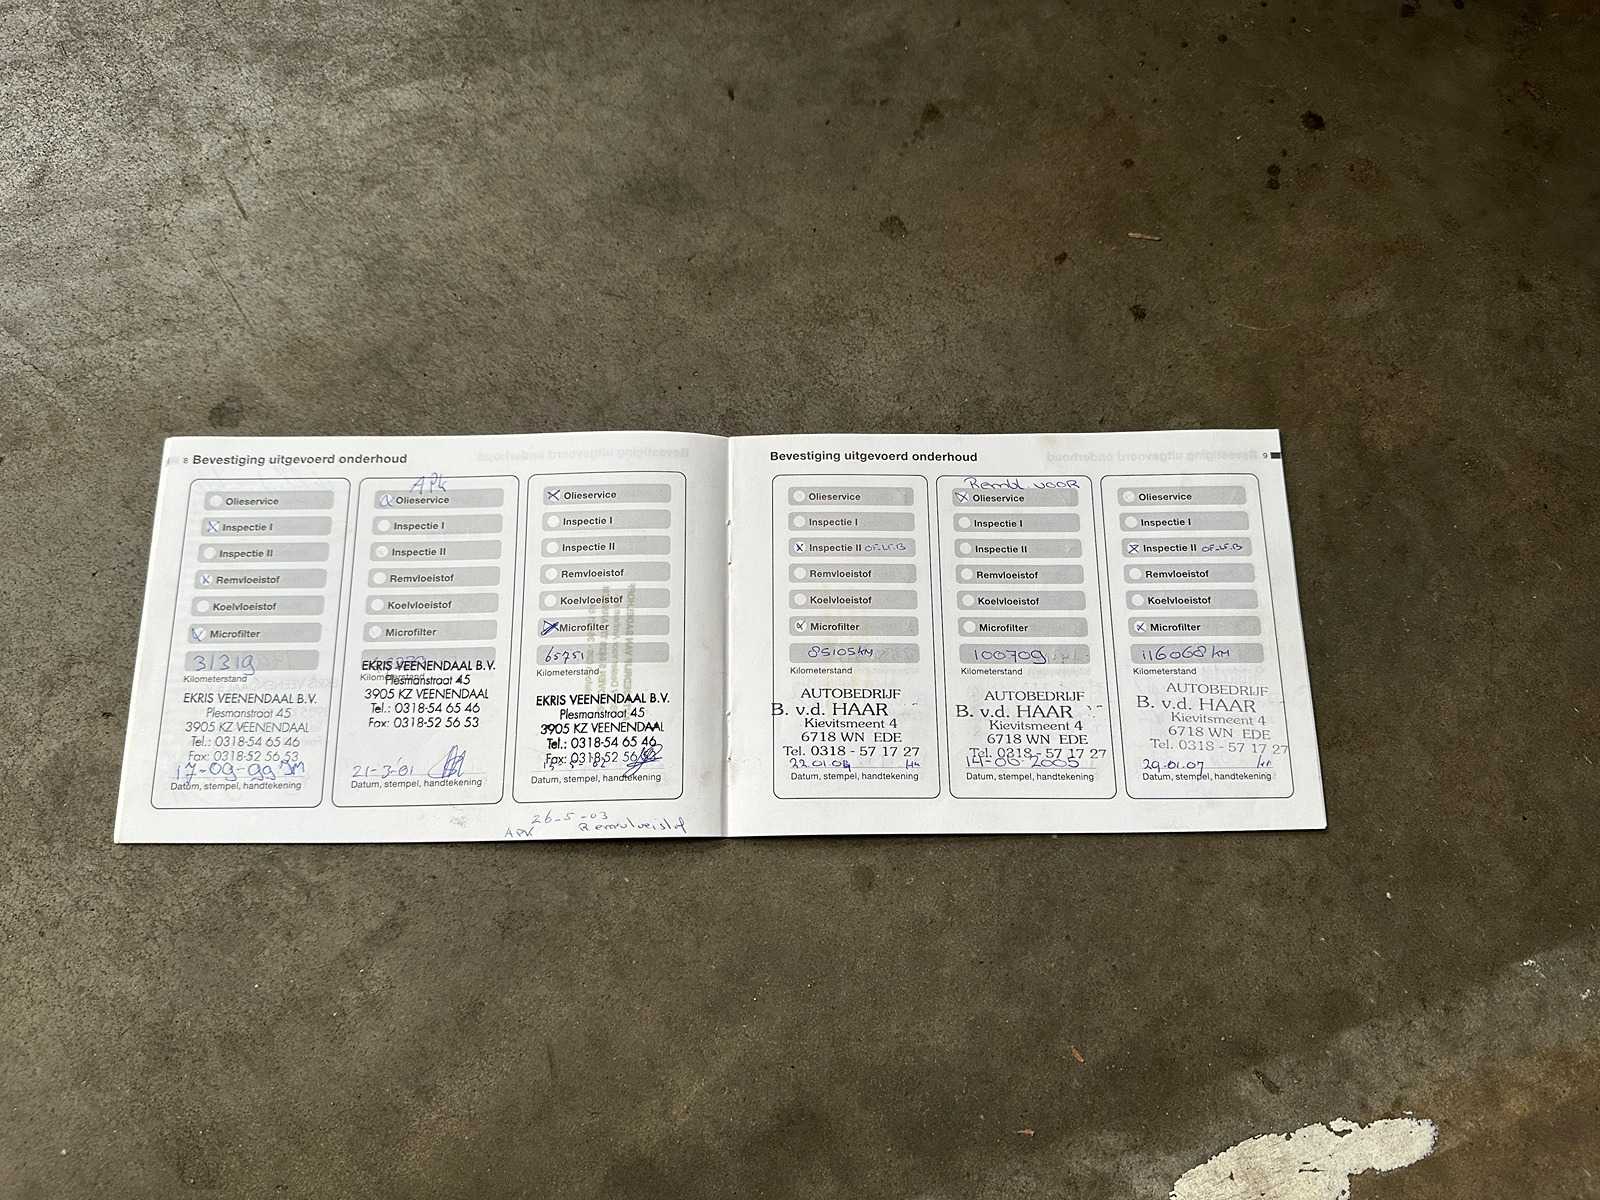 8 Bevestiging uitgevoerd onderhoud
Olieservice
Inspectie I
Inspectie II
Remvloeistof
Koelvloeistof
Microfilter
31319
Kilometerstand
EKRIS VEENENDAAL B.V.
Plesmanstraat 45
3905 KZ VEENENDAAL
Tel.: 0318-54 65 46
Fax: 0318-52 56 53
17-09-99
Datum, stempel, handtekening
APK
Olieservice
Inspectie I
Inspectie II
Remvloeistof
Koelvloeistof
Microfilter
Kilometerstand
EKRIS VEENENDAAL B.V.
Plesmanstraat 45
3905 KZ VEENENDAAL
Tel.: 0318-54 65 46
Fax: 0318-52 56 53
21-3-'01
Datum, stempel, handtekening
Olieservice
Inspectie I
Inspectie II
Remvloeistof
Koelvloeistof
Microfilter
65751
Kilometerstand
EKRIS VEENENDAAL B.V.
Plesmanstraat 45
3905 KZ VEENENDAAL
Tel.: 0318-54 65 46
Fax: 0318-52 56 53
Datum, stempel, handtekening
26-5-03
APK Remvloeistof
Bevestiging uitgevoerd onderhoud 9
Olieservice
Inspectie I
Inspectie II OF.LF.B
Remvloeistof
Koelvloeistof
Microfilter
85105 KM
Kilometerstand
AUTOBEDRIJF
B. v.d. HAAR
Kievitsmeent 4
6718 WN EDE
Tel. 0318 - 57 17 27
22.01.04
Datum, stempel, handtekening
Rembl. VOOR
Olieservice
Inspectie I
Inspectie II
Remvloeistof
Koelvloeistof
Microfilter
100709
Kilometerstand
AUTOBEDRIJF
B. v.d. HAAR
Kievitsmeent 4
6718 WN EDE
Tel. 0318 - 57 17 27
14-06-2005
Datum, stempel, handtekening
Olieservice
Inspectie I
Inspectie II OF.LF.B
Remvloeistof
Koelvloeistof
Microfilter
116068 KM
Kilometerstand
AUTOBEDRIJF
B. v.d. HAAR
Kievitsmeent 4
6718 WN EDE
Tel. 0318 - 57 17 27
29.01.07
Datum, stempel, handtekening